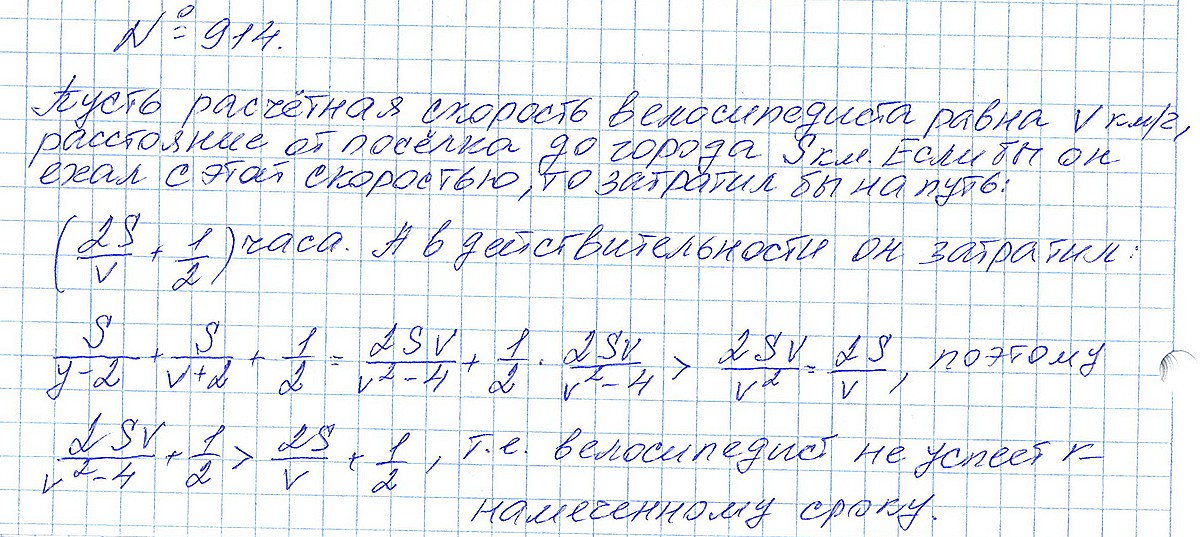 № 914.
Пусть расчётная скорость велосипедиста равна v км/ч,
расстояние от посёлка до города S км. Если бы он
ехал с этой скоростью, то затратил бы на путь:
(2S/v + 1/2) часа. А в действительности он затратил:
S/(y-2) + S/(v+2) + 1/2 = 2Sv/(v²-4) + 1/2 · 2Sv/(v²-4) > 2Sv/v² = 2S/v, поэтому
2Sv/(v²-4) + 1/2 > 2S/v + 1/2, т.е. велосипедист не успеет к
намеченному сроку.